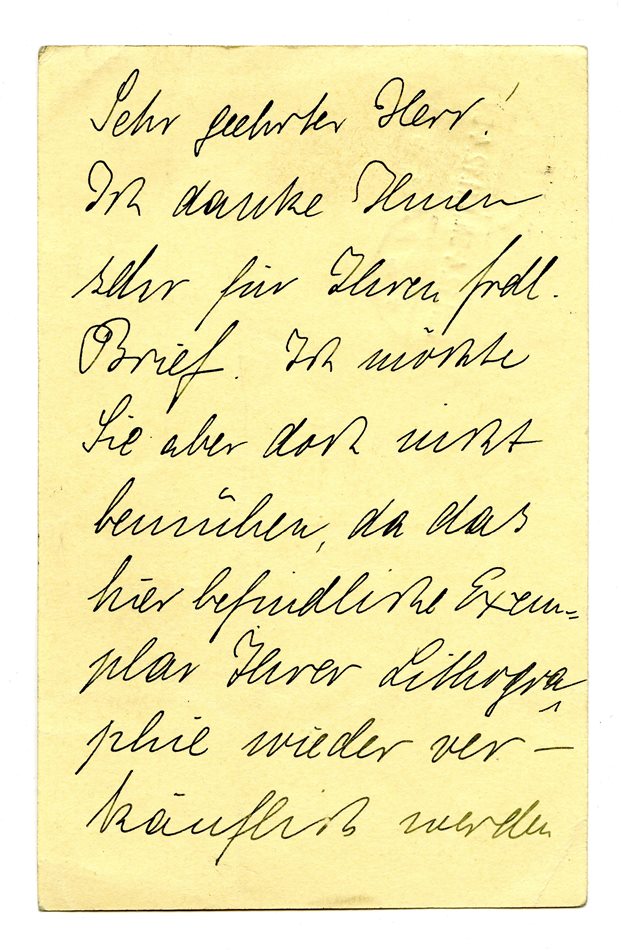 Sehr geehrter Herr!
Ich danke Ihnen
sehr für Ihren frdl.
Brief. Ich möchte
Sie aber doch nicht
bemühen, da das
hier befindliche Exem=
plar Ihrer Lithogra
phie wieder ver-
käuflich werden